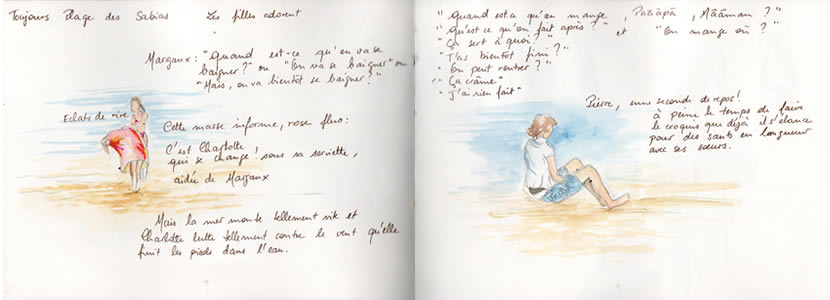 Toujours Plage des Sabias Les filles adorent
Margaux : "Quand est-ce qu'on va se
baigner ?" ou "On va se baigner" ou
"Mais, on va bientôt se baigner ?"
Eclats de rire
Cette masse informe, rose fluo :
C'est Charlotte
qui se change ! sous sa serviette,
aidée de Margaux
Mais la mer monte tellement vite et
Charlotte lutte tellement contre le vent qu'elle
finit les pieds dans l'eau.
"Quand est-ce qu'on mange, Pââäpä, Mââman ?"
"Qu'est ce qu'on fait après ?" et "On mange où ?"
"Ça sert à quoi ?"
"T'as bientôt fini ?"
"On peut rentrer ?"
"Ça crâme"
"J'ai rien fait"
Pierre, une seconde de repos !
à peine le temps de faire
le croquis que déjà il s'élance
pour des sauts en longueur
avec ses sœurs.